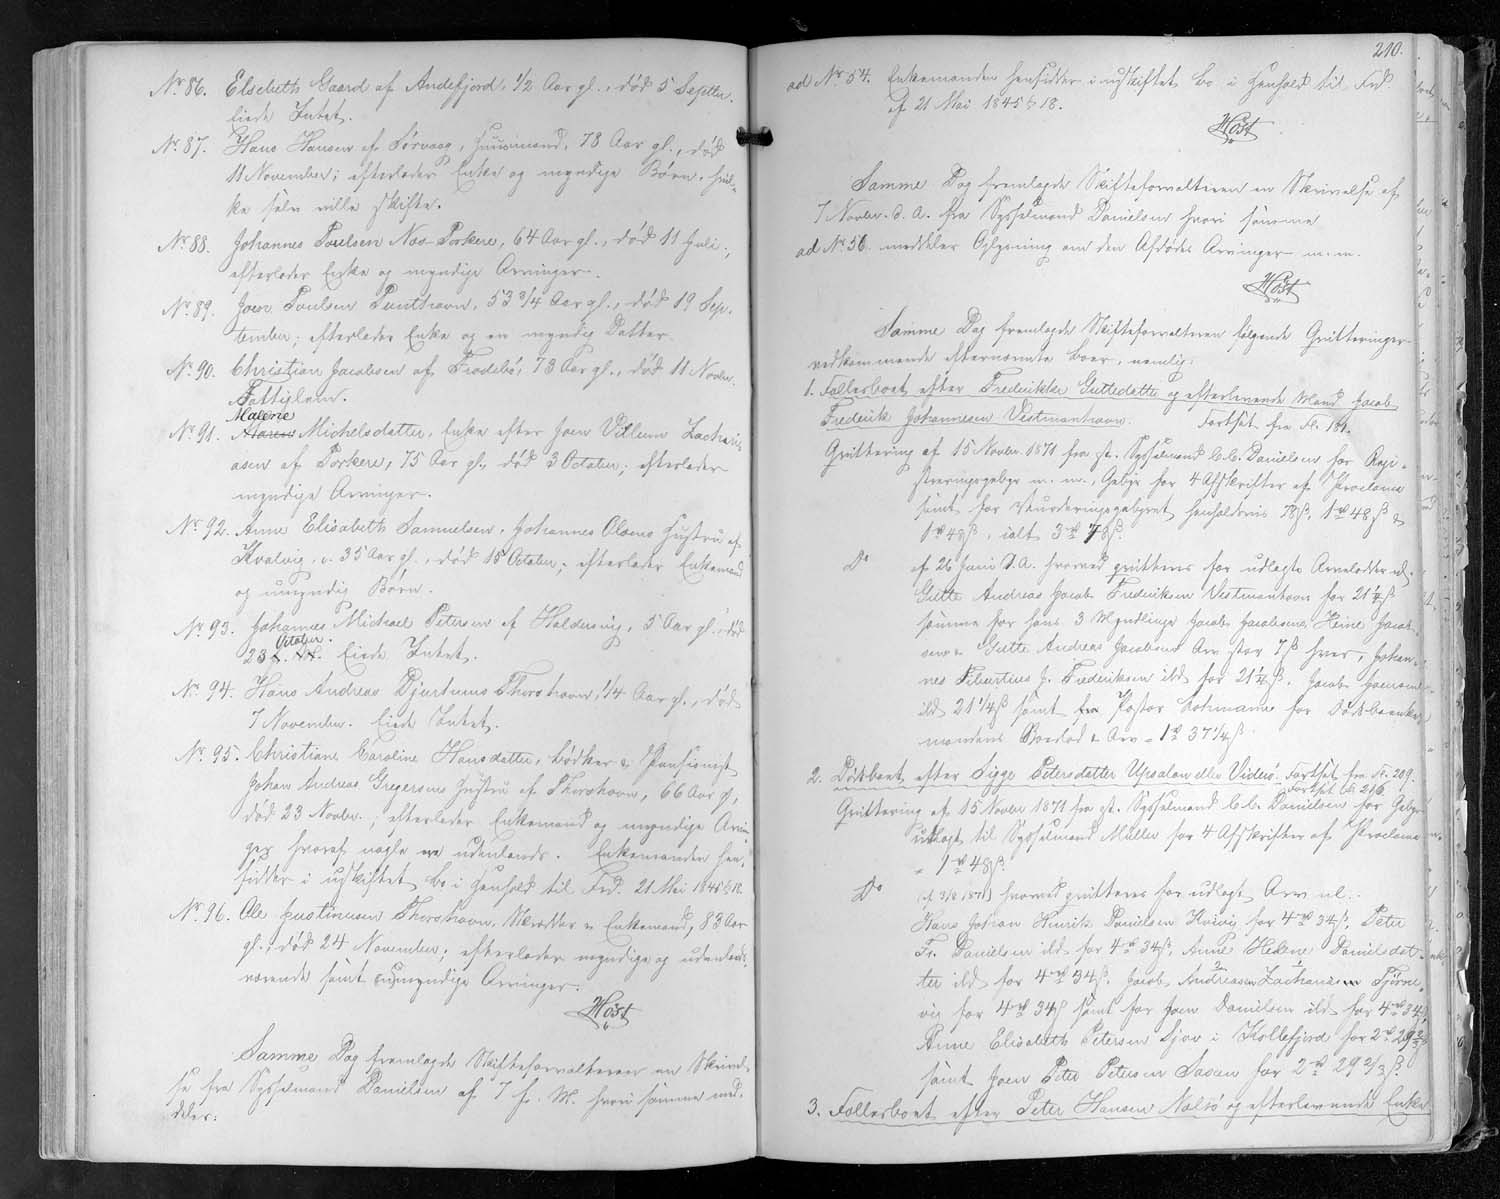 No. 86. Elsebeth Gaard af Andefjord, 1/2 Aar gl., død 5 Septbr.
Eiede Intet.
No. 87. Hans Hansen af Sørvaag, Huusmand, 78 Aar gl., død
11 November; efterlader Enke og myndige Børn, hvil-
ke selv ville skifte.
No. 88. Johannes Poulsen Næs Porkere, 64 Aar gl., død 11 Juli;
efterlader Enke og myndige Arvinger.
No. 89. Joen Poulsen Punthavn, 53 3/4 Aar gl., død 19 Sep-
tember; efterlader Enke og en myndig Datter.
No. 90. Christian Jacobsen af Frodebø, 73 Aar gl., død 11 Novbr.
Fattiglem.
Malene
No. 91. Maren Michelsdatter, Enke efter Joen Villum Zachari-
asen af Porkere, 75 Aar gl., død 3 October; efterlader
myndige Arvinger.
No. 92. Anne Elisabeth Samuelsen, Johannes Olsens Hustru af
Hvalvig, 35 Aar gl., død 15 October; efterlader Enkemand
og umyndig Børn.
No. 93. Johannes Michael Petersen af Haldersvig, 5 Aar gl., død
October.
23 f. M. Eiede Intet.
No. 94. Hans Andreas Djurhuus Thorshavn, 1/4 Aar gl., død
7 November. Eiede Intet.
No. 95. Christiane Caroline Hansdatter, Bødker & Pensionist
Johan Andreas Gregersens Hustru af Thorshavn, 66 Aar gl.,
død 23 Novbr.; efterlader Enkemand og myndige Arvin-
ger hvoraf nogle ere udenlands. Enkemanden hen-
sidder i uskiftet Bo i Henhold til Frd. 21 Mai 1845 § 18.
No. 96. Ole Justinusen Thorshavn, Skrædder & Enkemand, 83 Aar
gl., død 24 November; efterlader myndige og udenlands-
værende samt umyndige Arvinger.
Høst
Samme Dag fremlagde Skifteforvalteren en Skrivel-
se fra Sysselmand Danielsen af 7 f. M. hvori samme med-
deler:
210.
ad No. 54. Enkemanden hensidder i uskiftet Bo i Henhold til Frd.
af 21 Mai 1845 § 18.
Høst
Samme Dag fremlagde Skifteforvalteren en Skrivelse af
7 Novbr. d. A. fra Sysselmand Danielsen hvori samme
ad No. 56. meddeler Oplysning om den Afdødes Arvinger m.m.
Høst
Samme Dag fremlagde Skifteforvalteren følgende Qvitteringer
vedkommende efternævnte Boer, nemlig:
1. Fællesboet efter Frederikke Guttesdatter og efterlevende Mand Jacob
Frederik Johannesen Vestmanhavn. Fortsat fra Fl. 181.
Qvittering af 15 Novbr. 1871 fra st. Sysselmand C.C. Danielsen for Regi-
streringsgebyr m. m., Gebyr for 4 Afskrifter af Proclama
samt for Vurderingsgebyret henholdsvis 78 ß, 1 rd 48 ß &
1 rd 48 ß, ialt 3 rd 78 ß.
Do af 26 Juni d. A. hvorved qvitteres for udlagte Arvelodder nl.
Gutte Andreas Jacob Frederiksen Vestmanhavn for 21 1/4 ß
samme for hans 3 Myndlinge Jacob Jacobsens, Heine Jacob-
sens & Gutte Andreas Jacobsens Arv stor 7 ß hver, Johan-
nes Tiburtius J. Frederiksen ibd for 21 1/4 ß, Jacob Joensen
ibd 21 1/4 ß samt fra Pastor Lohmann for Dødsboenke-
mandens Boeslod & Arv 1 rd 37 1/4 ß.
2. Dødsboet efter Sigge Petersdatter Upsalan eller Viderø. Fortsat fra Fl. 209.
Fortsat Fl. 216.
Qvittering af 15 Novbr 1871 fra st. Sysselmand C.C. Danielsen for Gebyr
udlagt til Sysselmand Müller for 4 Afskrifter af Proclama
1 rd 48 ß.
Do (af 3/8 1871) hvorved qvitteres for udlagt Arv nl.:
Hans Johan Henrik Danielsen Hvivig for 4 rd 34 ß, Peter
Fr. Danielsen ibd for 4 rd 34 ß, Anne Helene Danielsdat-
ter ibd for 4 rd 34 ß. Jacob Andreasen Zachariasen Tjørne-
vig for 4 rd 34 ß samt for Joen Danielsen ibd for 4 rd 34 ß,
Anne Elisabeth Petersen Sjov i Kollefjord for 2 rd 29 2/3 ß
samt Joen Peter Petersen Saxen for 2 rd 29 2/3 ß.
3. Fællesboet efter Peter Hansen Nolsø og efterlevende Enke